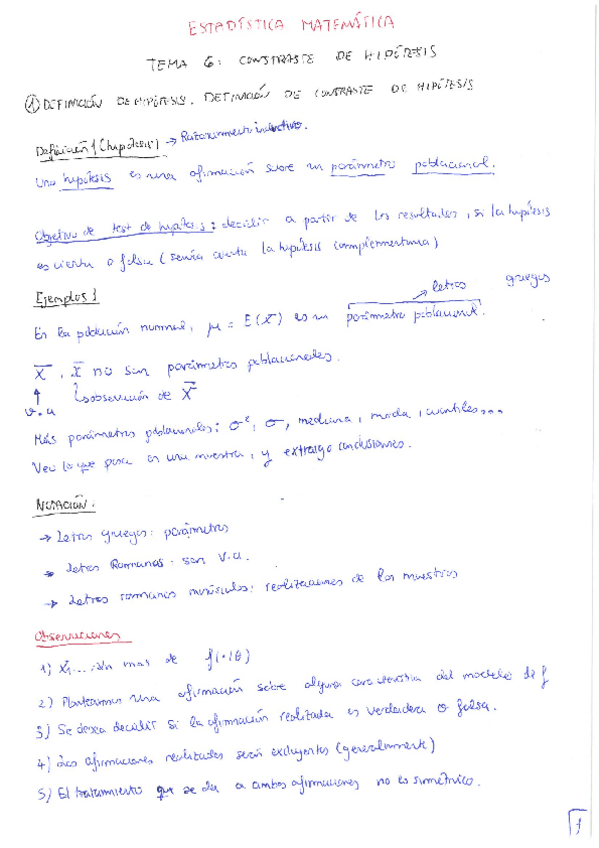 ESTADÍSTICA MATEMÁTICA
TEMA 6: CONTRASTE DE HIPÓTESIS
① DEFINICIÓN DE HIPÓTESIS. DEFINICIÓN DE CONTRASTE DE HIPÓTESIS
Definición 1 (hipótesis) → Razonamiento inductivo.
Una hipótesis es una afirmación sobre un parámetro poblacional.
Objetivo de test de hipótesis: decidir a partir de los resultados, si la hipótesis
es cierta o falsa (sería cierta la hipótesis complementaria)
Ejemplos}
→ letras griegas
En la población normal, μ = E(X) es un parámetro poblacional.
X̅, x̅ no son parámetros poblacionales.
↑ ↳ observación de X̅
v.a
Más parámetros poblacionales: σ², σ, mediana, moda, cuantiles...
Veo lo que pasa en una muestra, y extraigo conclusiones.
NOTACIÓN.
→ Letras griegas: parámetros
→ Letras Romanas: son v.a.
→ Letras romanas minúsculas: realizaciones de las muestras
Observaciones
1) X₁,...,Xn mas de f(·|θ)
2) Planteamos una afirmación sobre alguna característica del modelo de f
3) Se desea decidir si la afirmación realizada es verdadera o falsa.
4) Las afirmaciones realizadas serán excluyentes (generalmente)
5) El tratamiento que se da a ambas afirmaciones no es simétrico.
1